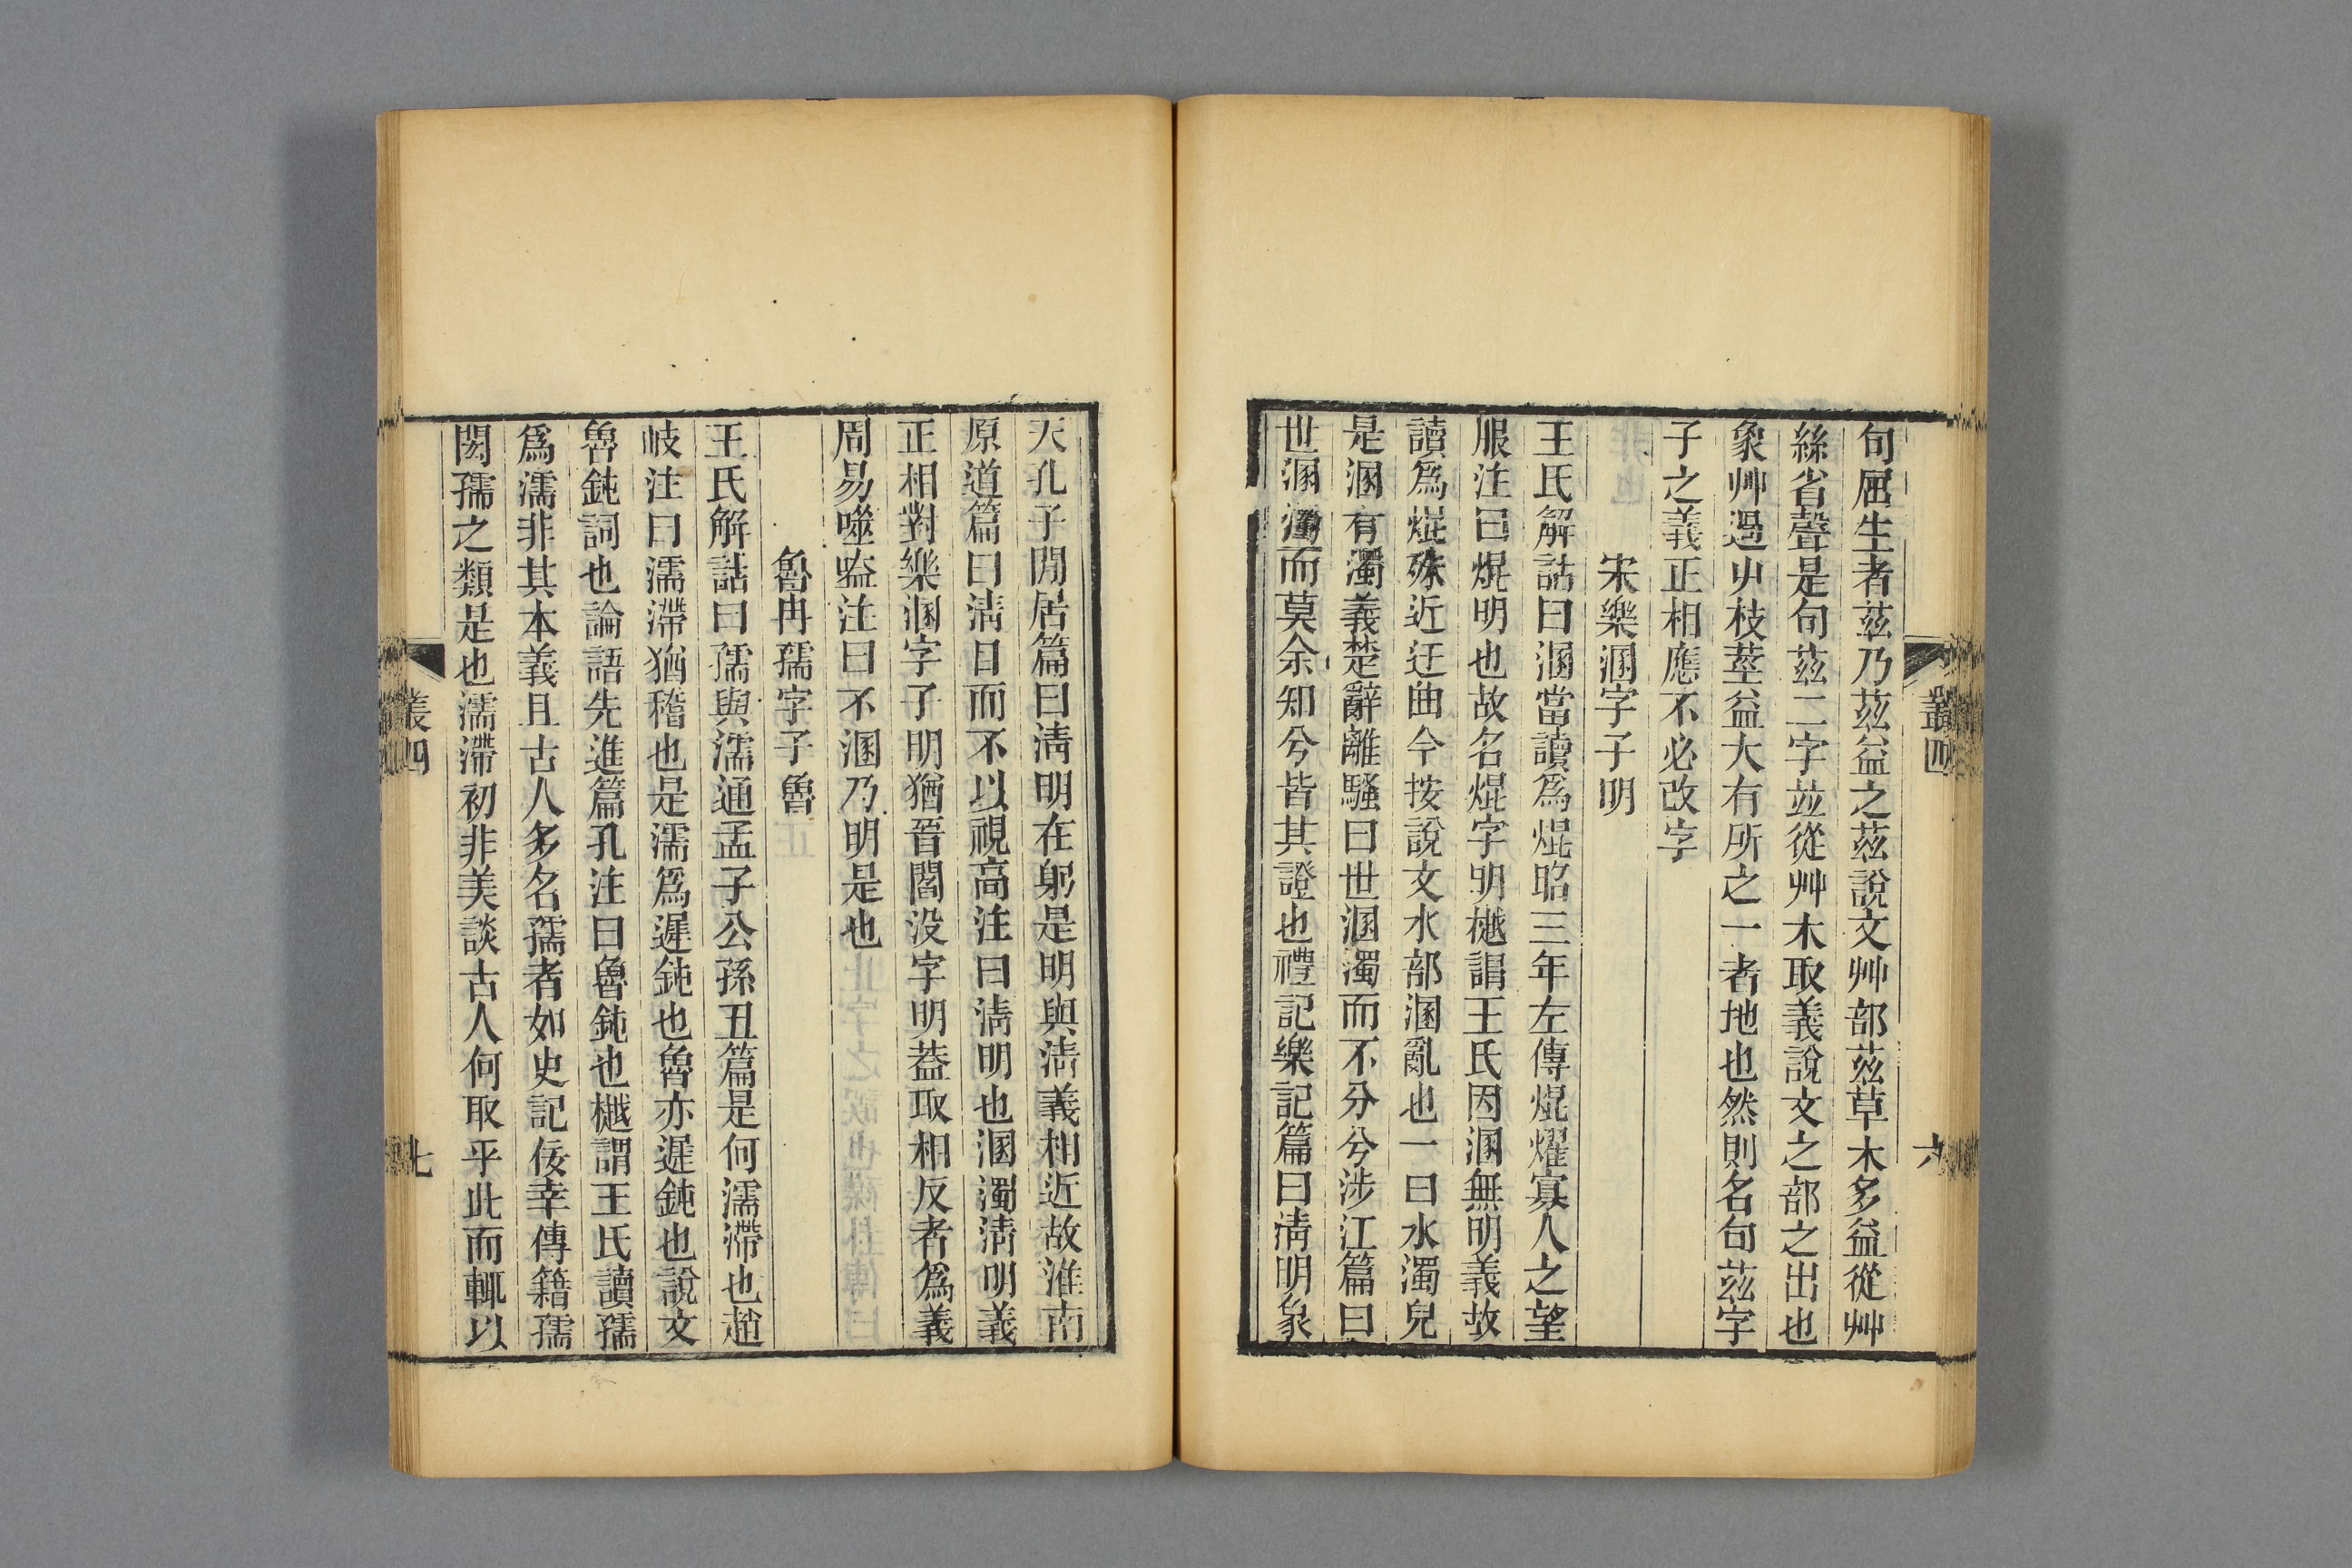 句屈生者茲乃茲益之茲說文艸部茲草木多益從艸
絲省聲是句茲二字並從艸木取義說文之部之出也
象艸過屮枝莖益大有所之一者地也然則名句茲字
子之義正相應不必改字
宋樂溷字子明
王氏解詁曰溷當讀爲焜昭三年左傳焜燿寡人之望
服注曰焜明也故名焜字明樾謂王氏因溷無明義故
讀爲焜殊近迂曲今按說文水部溷亂也一曰水濁皃
是溷有濁義楚辭離騷曰世溷濁而不分兮涉江篇曰
世溷濁而莫余知兮皆其證也禮記樂記篇曰淸明象
叢四
六
天孔子閒居篇曰淸明在躬是明與淸義相近故淮南
原道篇曰淸目而不以視高注曰淸明也溷濁淸明義
正相對樂溷字子明猶晉閻没字明葢取相反者爲義
周易噬嗑注曰不溷乃明是也
魯冉孺字子魯
王氏解詁曰孺與濡通孟子公孫丑篇是何濡滯也趙
岐注曰濡滯猶稽也是濡爲遲鈍也魯亦遲鈍也說文
魯鈍詞也論語先進篇孔注曰魯鈍也樾謂王氏讀孺
爲濡非其本義且古人多名孺者如史記佞幸傳籍孺
閎孺之類是也濡滯初非美談古人何取乎此而輒以
叢四
七